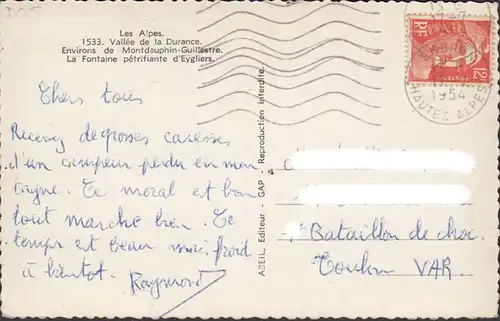 Les Alpes.
1533. Vallée de la Durance.
Environs de Montdauphin-Guillestre.
La Fontaine pétrifiante d'Eygliers.
Chers tous
Recevez de grosses caresses
d'un campeur perdu en mon
tagne. Le moral est bon
tout marche bien. Le
temps est beau mais froid
à bientot. Raymond
ABEIL, Editeur - GAP - Reproduction interdite.
RF
POSTES
1954
HAUTES ALPES
Bataillon de choc
Toulon VAR.